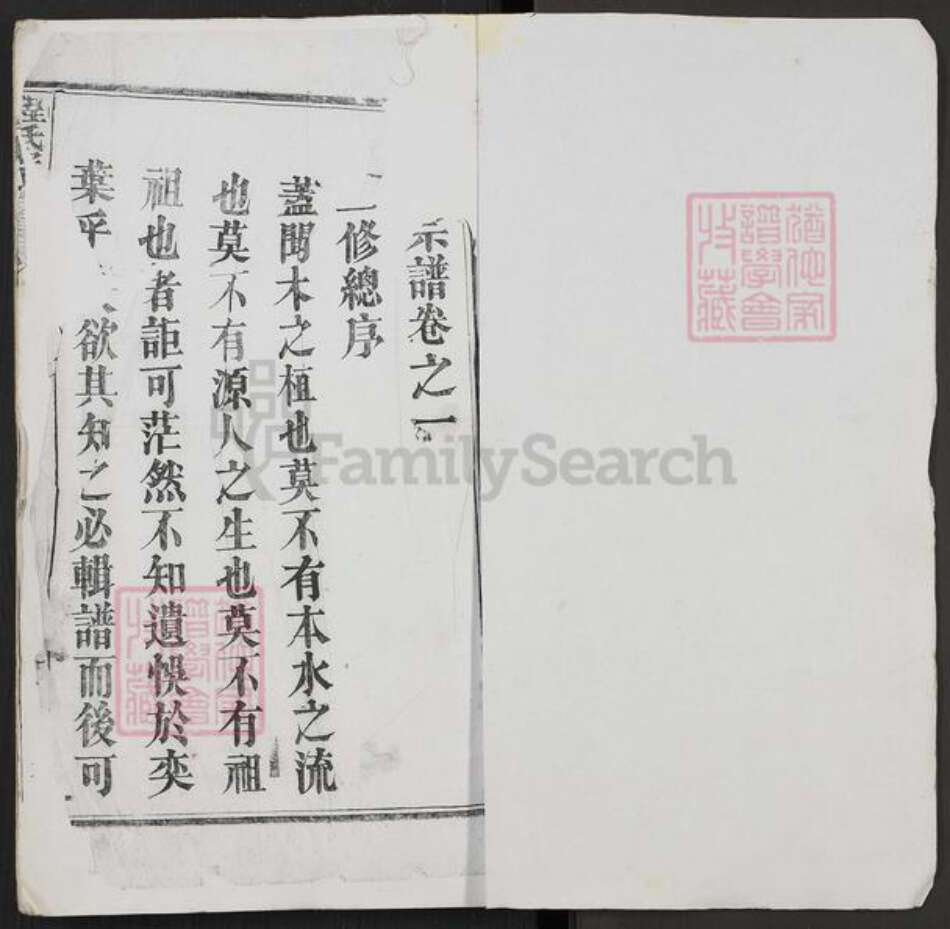 示譜卷之一
二修總序
蓋聞木之植也莫不有本水之流
也莫不有源人之生也莫不有祖
祖也者詎可茫然不知遺悞於奕
葉乎 欲其知之必輯譜而後可
猶他家
譜學會
收藏
FamilySearch